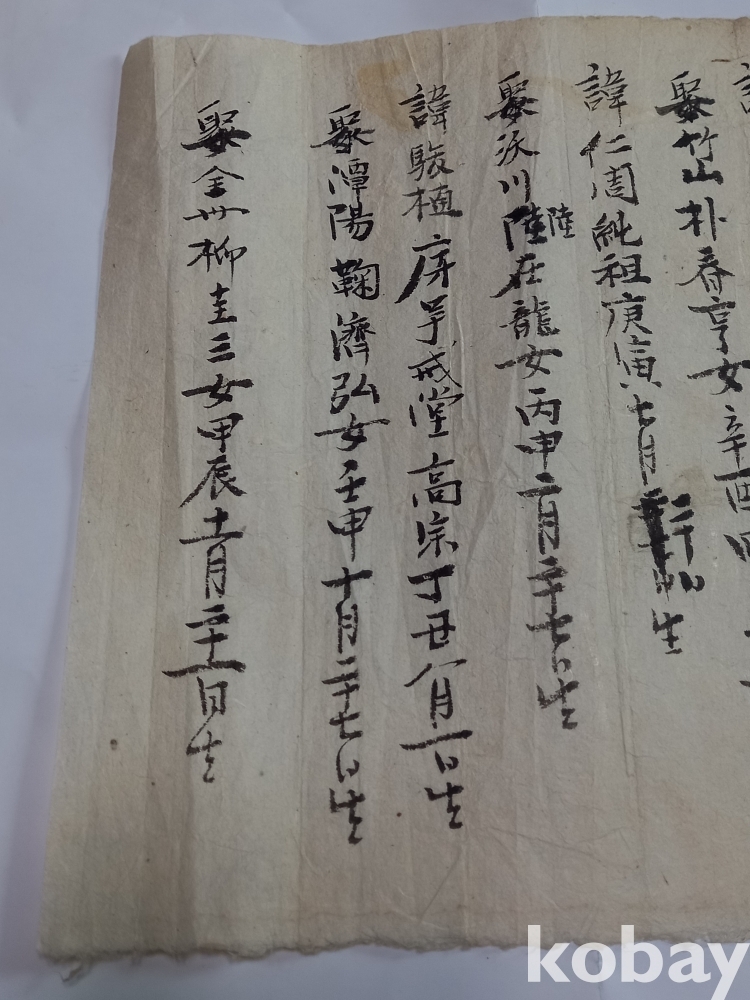 諱
娶竹山朴春亨女辛酉四
諱仁周純祖庚寅七月二十 日生
娶沃川陸在龍女丙申二月二十七日生
陸
諱駿植 戒堂高宗丁丑八月一日生
娶潭陽鞠濟弘女壬申十月二十七日生
娶全州柳圭三女甲辰十一月二十一日生
kobay